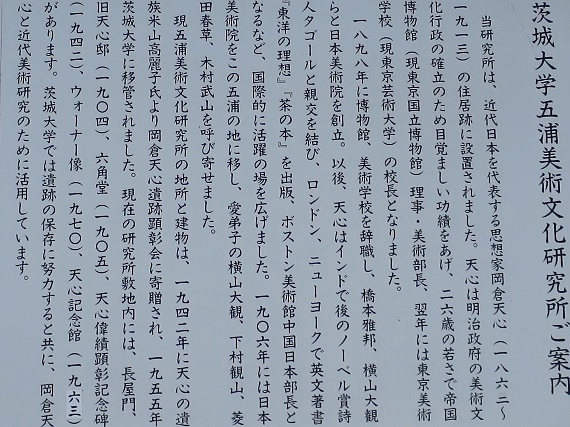 茨城大学五浦美術文化研究所ご案内
当研究所は、近代日本を代表する思想家岡倉天心（一八六二〜
一九一三）の住居跡に設置されました。天心は明治政府の美術文
化行政の確立のため目覚ましい功績をあげ、二六歳の若さで帝国
博物館（現東京国立博物館）理事・美術部長、翌年には東京美術
学校（現東京芸術大学）の校長となりました。
一八九八年に博物館、美術学校を辞職し、橋本雅邦、横山大観
らと日本美術院を創立。以後、天心はインドで後のノーベル賞詩
人タゴールと親交を結び、ロンドン、ニューヨークで英文著書
『東洋の理想』『茶の本』を出版、ボストン美術館中国日本部長と
なるなど、国際的に活躍の場を広げました。一九〇六年には日本
美術院をこの五浦の地に移し、愛弟子の横山大観、下村観山、菱
田春草、木村武山を呼び寄せました。
現五浦美術文化研究所の地所と建物は、一九四二年に天心の遺
族米山高麗子氏より岡倉天心遺跡顕彰会に寄贈され、一九五五年
茨城大学に移管されました。現在の研究所敷地内には、長屋門、
旧天心邸（一九〇四）、六角堂（一九〇五）、天心偉績顕彰記念碑
（一九四二）、ウォーナー像（一九七〇）、天心記念館（一九六三）
があります。茨城大学では遺跡の保存に努力すると共に、岡倉天
心と近代美術研究のために活用しています。